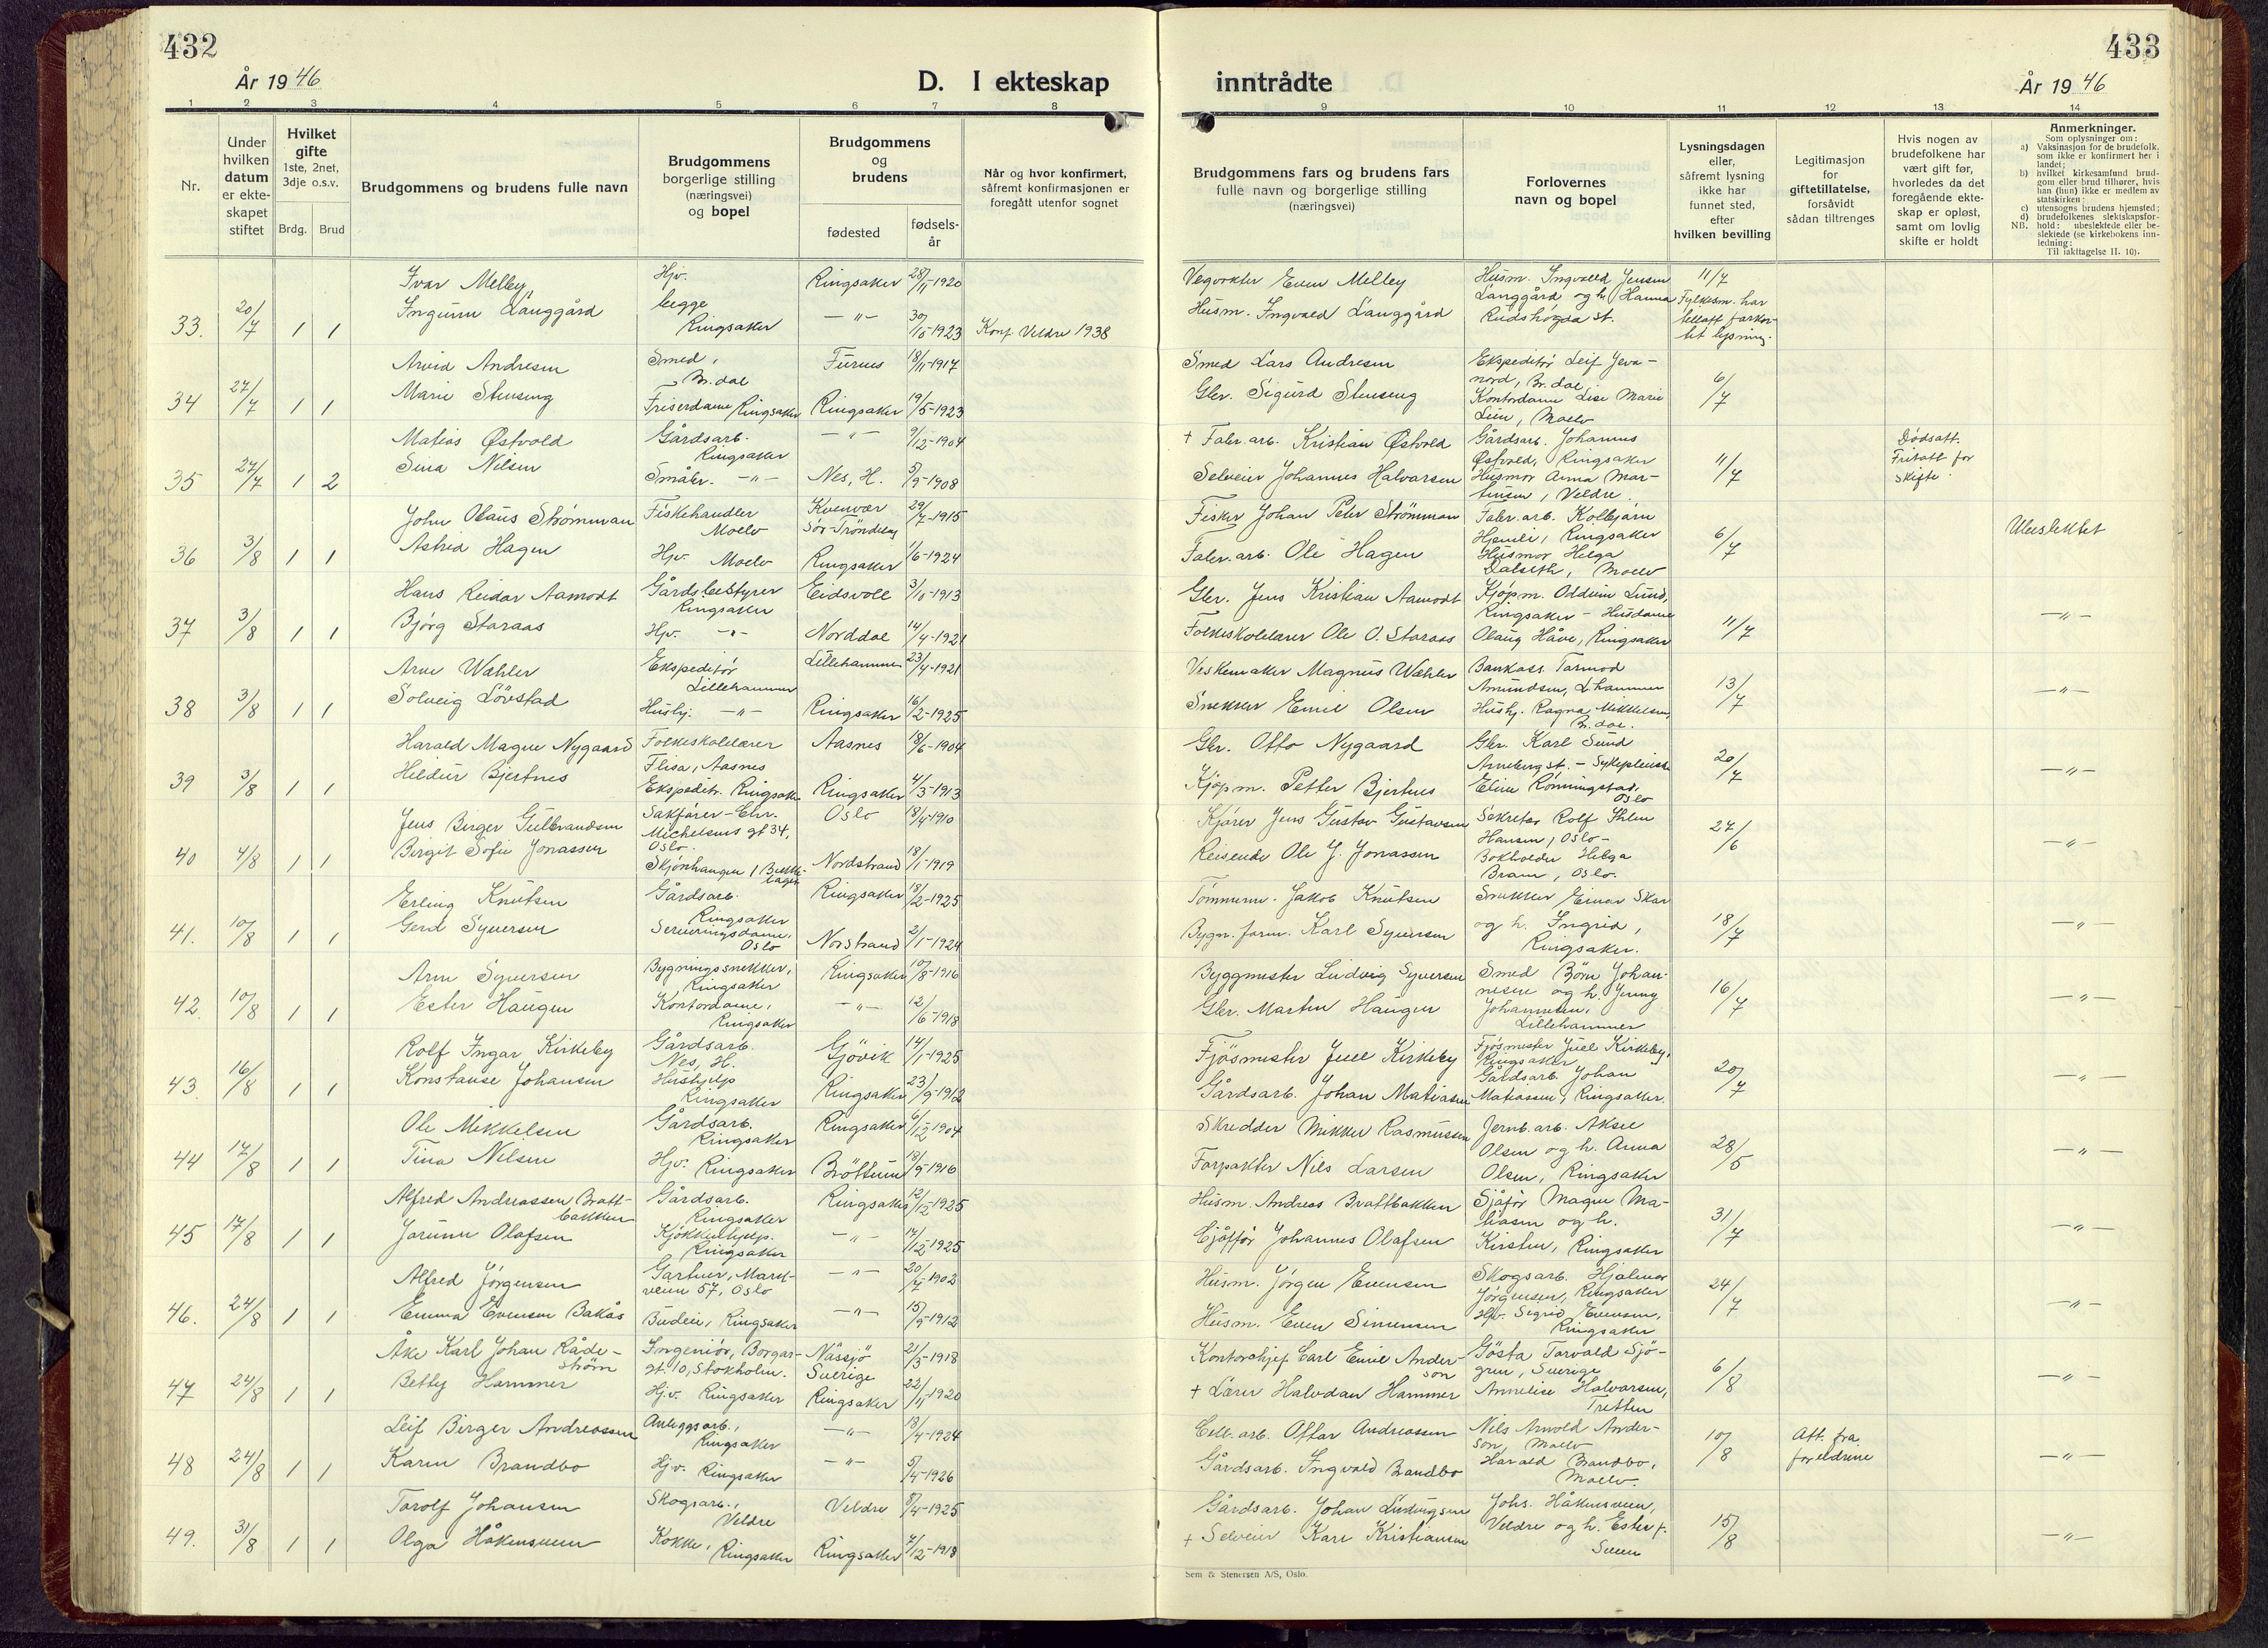 432
År 19 46
D. I ekteskap
1 2 3 4 5 6 7 8
Nr.
Under hvilken datum er ekteskapet stiftet
Hvilket gifte 1ste, 2net, 3dje o.s.v.
Brdg. Brud
Brudgommens og brudens fulle navn
Brudgommens borgerlige stilling (næringsvei) og bopel
Brudgommens og brudens
fødested
fødsels-år
Når og hvor konfirmert, såfremt konfirmasjonen er foregått utenfor sognet
33. 20/7 1 1
Ivar Melby, Hjv. Ringsaker 28/11-1920
Ingunn Langgård begge Ringsaker —"— 30/10-1923 Konf. Veldre 1938
34 27/7 1 1
Arvid Andresen Smed, Br.dal Furnes 18/11-1917
Marie Stensing Friserdame Ringsaker Ringsaker 19/5-1923
35 27/7 1 2
Matias Østvold Gårdsarb. Ringsaker —"— 9/12-1904
Sina Nilsen Småbr. —"— Nes, H. 5/9-1908
36 3/8 1 1
John Olaus Strømman Fiskehandler Moelv Kvenvær Sør-Trøndelag 29/7-1915
Astrid Hagen Hjv. Moelv Ringsaker 1/6-1924
37 3/8 1 1
Hans Reidar Aamodt Gårdsbestyrer Ringsaker Eidsvoll 3/10-1913
Bjørg Staraas Hjv. —"— Norddal 14/4-1921
38 3/8 1 1
Arne Wæhler Ekspeditør Lillehammer Lillehammer 23/4-1921
Solveig Løvstad Hushj. —"— Ringsaker 16/2-1925
39 3/8 1 1
Harald Magne Nygaard Folkeskolelærer Flisa, Aasnes Aasnes 18/6-1904
Hildur Bjertnes Ekspeditr. Ringsaker Ringsaker 4/3-1913
40 4/8 1 1
Jens Birger Gulbrandsen Sakfører-Chr. Michelsens gt 34, Oslo. Oslo 18/4-1910
Birgit Sofie Jonassen Skjønhaugen, Bekkelaget Nordstrand 18/1-1919
41. 10/8 1 1
Erling Knutsen Gårdsarb. Ringsaker Ringsaker 18/2-1925
Gerd Syversen Serveringsdame, Oslo Norstrand 2/1-1924
42. 10/8 1 1
Arne Syversen Bygningssnekker, Ringsaker Ringsaker 10/8-1916
Ester Haugen Kontordame, Ringsaker —"— 12/6-1918
43. 16/8 1 1
Rolf Ingar Kirkeby Gårdsarb. Nes, H. Gjøvik 14/1-1925
Konstanse Johansen Hushjelp Ringsaker Ringsaker 23/9-1912
44 17/8 1 1
Ole Mikkelsen Gårdsarb. Ringsaker Ringsaker 6/12-1904
Tina Nilsen Hjv. Ringsaker Brøttum 18/9-1916
45 17/8 1 1
Alfred Andreassen Brattbakken Gårdsarb. Ringsaker Ringsaker 12/12-1925
Jorunn Olafsen Kjøkkenhjelp. Ringsaker —"— 14/12-1925
46. 24/8 1 1
Alfred Jørgensen Gartner, Markveien 57, Oslo —"— 20/7-1902
Emma Evensen Bakås Budeie, Ringsaker —"— 15/9-1912
47 24/8 1 1
Åke Karl Johan Rådeström Ingeniør, Borgargt. 10, Stokholm. Nässjö Sverige 21/3-1918
Betty Hammer Hjv. Ringsaker Ringsaker 22/11-1920
48 24/8 1 1
Leif Birger Andreassen Anleggsarb., Ringsaker —"— 18/4-1924
Karin Brandbo Hjv. Ringsaker —"— 5/4-1926
49. 31/8 1 1
Torolf Johansen Skogsarb., Veldre Veldre 8/4-1925
Olga Håkensveen Kokke, Ringsaker Ringsaker 7/12-1918
433
inntrådte
År 19 46
9 10 11 12 13 14
Brudgommens fars og brudens fars fulle navn og borgerlige stilling (næringsvei)
Forlovernes navn og bopel
Lysningsdagen eller, såfremt lysning ikke har funnet sted, efter hvilken bevilling
Legitimasjon for giftetillatelse, forsåvidt sådan tiltrenges
Hvis nogen av brudefolkene har vært gift før, hvorledes da det foregående ekteskap er opløst, samt om lovlig skifte er holdt
Anmerkninger.
Som oplysninger om:
a) Vaksinasjon for de brudefolk, som ikke er konfirmert her i landet;
b) hvilket kirkesamfund brudgom eller brud tilhører, hvis han (hun) ikke er medlem av statskirken;
c) utensogns brudens hjemsted;
d) brudefolkenes slektskapsforhold: ubeslektede eller beslektede (se kirkebokens innledning:
NB.
Til iakttagelse II. 10).
Vegvokter Even Melby Husm. Ingvald Jensen Langgård og h. Hanna Rudshøgda st. 11/7
Husm. Ingvald Langgård Fylkesm. har tillatt forkortet lysning.
Smed Lars Andresen Ekspeditør Leif Jevanord, Br.dal, 6/7
Gbr. Sigurd Stensing Kontordame Lise Marie Lien, Moelv
+ Fabr.arb. Kristian Østvold Gårdsarb. Johannes Østvold, Ringsaker 11/7 Dødsatt. Fritatt for skifte.
Selveier Johannes Halvorsen Husmor Anna Martinsen, Veldre.
Fisker Johan Peter Strømman Fabr.arb. Kolbjørn Hjemli, Ringsaker 6/7 Ubeslektet
Fabr.arb. Ole Hagen Husmor Helga Dalseth, Moelv
Gbr. Jens Kristian Aamodt Kjøpm. Oddvin Lund, Ringsaker — Husdame 11/7 —"—
Folkeskolelærer Ole O. Staraas Olaug Håve, Ringsaker
Veskemaker Magnus Wæhler Bankass. Tormod Amundsen, L.hammer 13/7 —"—
Snekker Emil Olsen Hushj. Ragna Mikkelsen, Br.dal.
Gbr. Otto Nygaard Gbr. Karl Sund Arneberg st. — Sykepleierske 20/7 —"—
Kjøpm. Petter Bjertnes Eline Rønningstad, Oslo
Kjører Jens Gustav Gustavsen Sekretær Rolf Ihlen Hansen, Oslo - 27/6 —"—
Reisende Ole J. Jonassen Bokholder Helga Bram, Oslo.
Tømmerm. Jakob Knutsen Snekker Einar Skar og h. Ingrid, Ringsaker. 18/7 —"—
Bygn.form. Karl Syversen
Byggmester Ludvig Syversen Smed Bjørn Johannesen og h. Jenny Johannesen, Lillehammer 16/7 —"—
Gbr. Martin Haugen
Fjøsmester Juel Kirkeby Fjøsmester Juel Kirkeby, Ringsaker 20/7 —"—
Gårdsarb. Johan Matiasen Gårdsarb. Johan Matiassen, Ringsaker.
Skredder Mikkel Rasmussen Jernb.arb. Aksel Olsen og h. Anna Olsen, Ringsaker 28/5 —"—
Forpakter Nils Larsen
Husm. Andreas Brattbakken Sjåfør Magne Mathiasen og h. Kirsten, Ringsaker 31/7 —"—
Sjåffør Johannes Olafsen
Husm. Jørgen Evensen Skogsarb. Hjalmar Jørgensen, Ringsaker 24/7 —"—
Husm. Even Simensen Hjv. Sigrid Evensen, Ringsaker
Kontorchjef Carl Emil Anderson Gösta Torvald Sjögren, Sverige 6/8 —"—
+ Lærer Halvdan Hammer Annelise Halvorsen, Tretten
Cell.arb. Ottar Andreassen Nils Arnold Anderson, Moelv 10/8 Att. fra foreldrene —"—
Gårdsarb. Ingvald Brandbo Harald Brandbo, Moelv.
Gårdsarb. Johan Ludvigsen Johs. Håkensveen, Veldre og h. Ester f. Sveen 15/8 —"—
+ Selveier Kare Kristiansen
Sem & Stenersen A/S, Oslo.